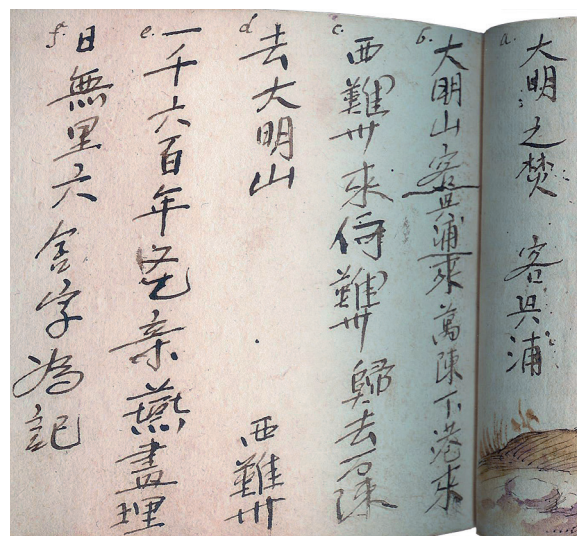 a. 大明之焚 客具浦
b. 大明山客具浦來萬陳下港來
c. 西難卅來倚難卅歸去陳
d. 去大明山 西難卅
e. 一千六百年亲燕盡理
f. 日無里六字為記